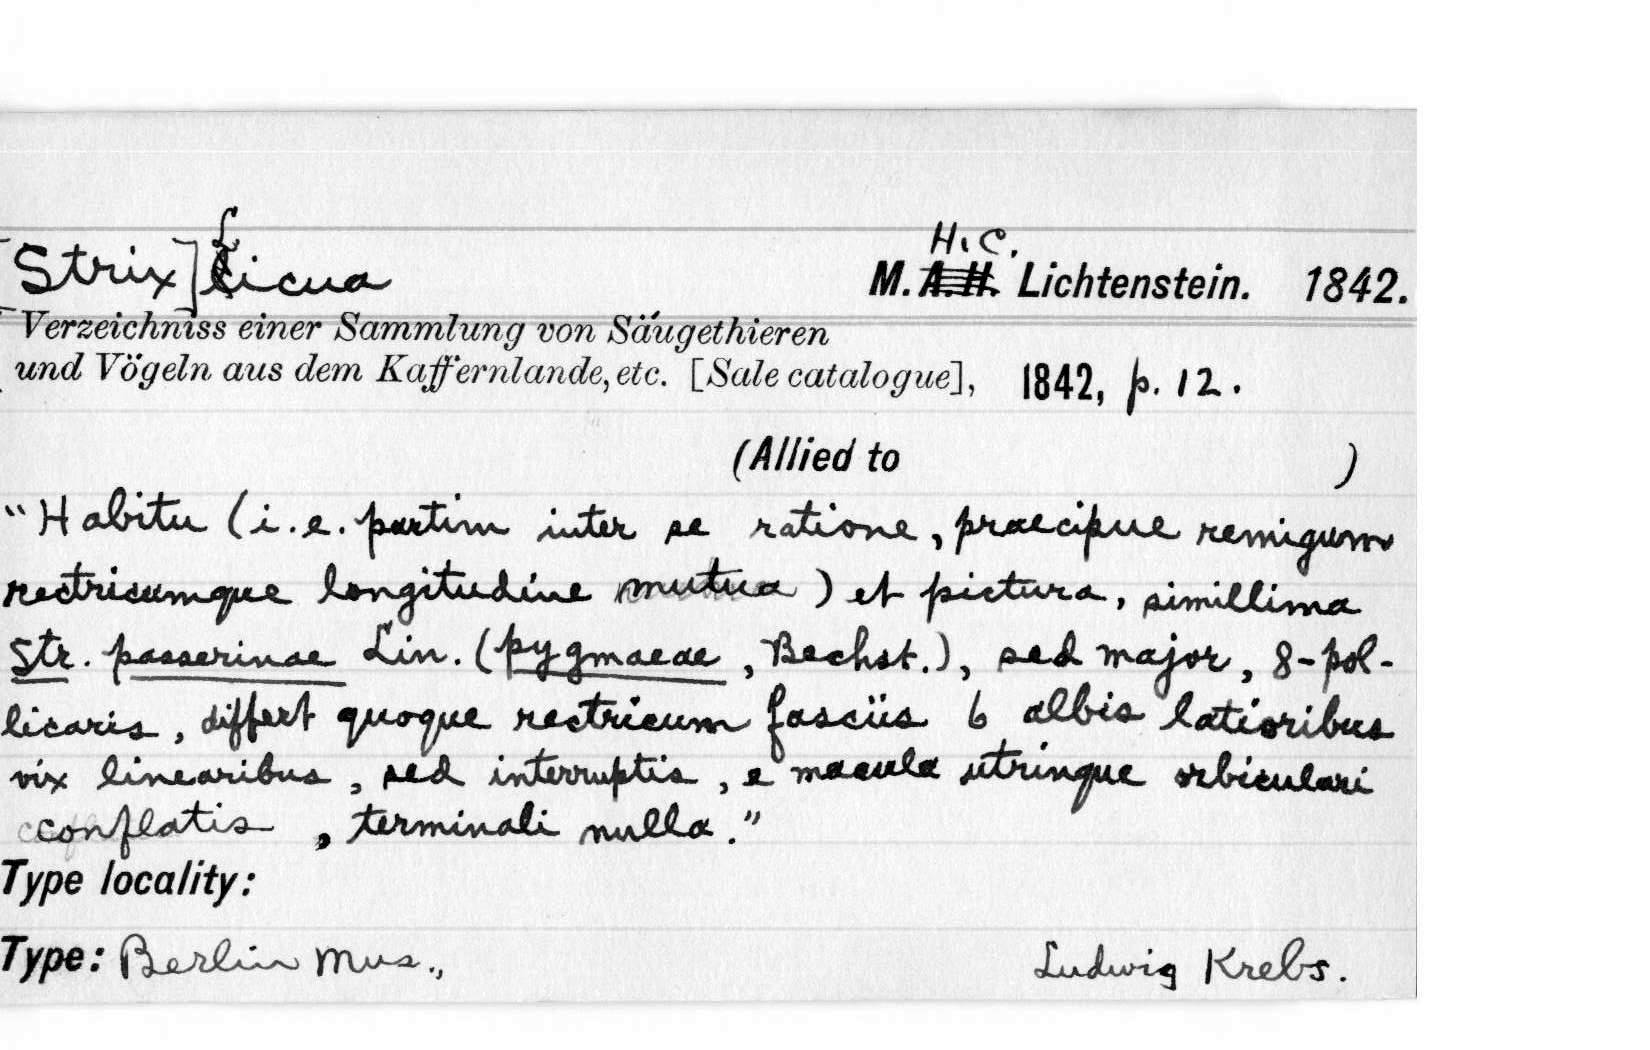 [Strix] Licua
M. H. C. Lichtenstein. 1842.
Verzeichniss einer Sammlung von Säugethieren
und Vögeln aus dem Kaffernlande, etc. [Sale catalogue], 1842, p. 12.
(Allied to )
"Habitu (i.e. partim inter se ratione, praecipue remigum
rectricumque longitudine mutua) et pictura, simillima
Str. passerinae Lin. (pygmaeae, Bechst.), sed major, 8-pol-
licaris, differt quoque rectricum fasciis 6 albis latioribus
vix linearibus, sed interruptis, e macula utrinque orbiculari
conflatis, terminali nulla."
Type locality:
Type: Berlin Mus., Ludwig Krebs.